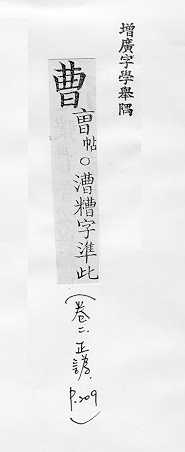 增廣字學舉隅
曹 帖○漕糟字準此
(卷二.正譌.P.209)